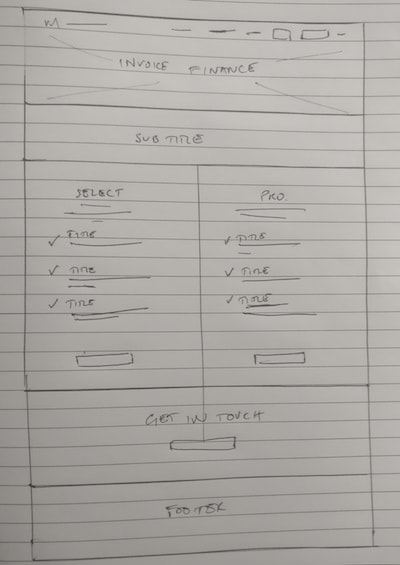 INVOICE FINANCE
SUB TITLE
SELECT
PRO.
TITLE
TITLE
TITLE
TITLE
TITLE
TITLE
GET IN TOUCH
FOOTER